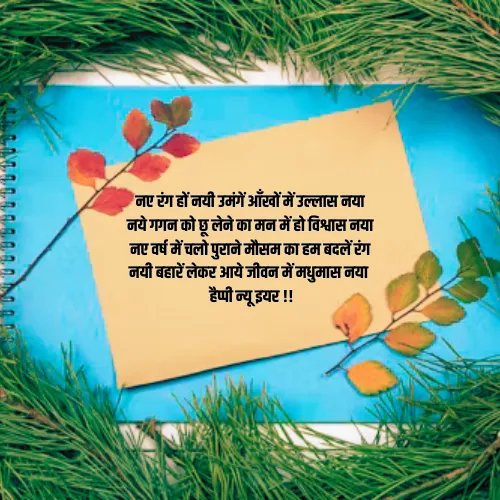 नए रंग हों नयी उमंगें आँखों में उल्लास नया
नये गगन को छू लेने का मन में हो विश्वास नया
नए वर्ष में चलो पुराने मौसम का हम बदलें रंग
नयी बहारें लेकर आये जीवन में मधुमास नया
हैप्पी न्यू इयर !!